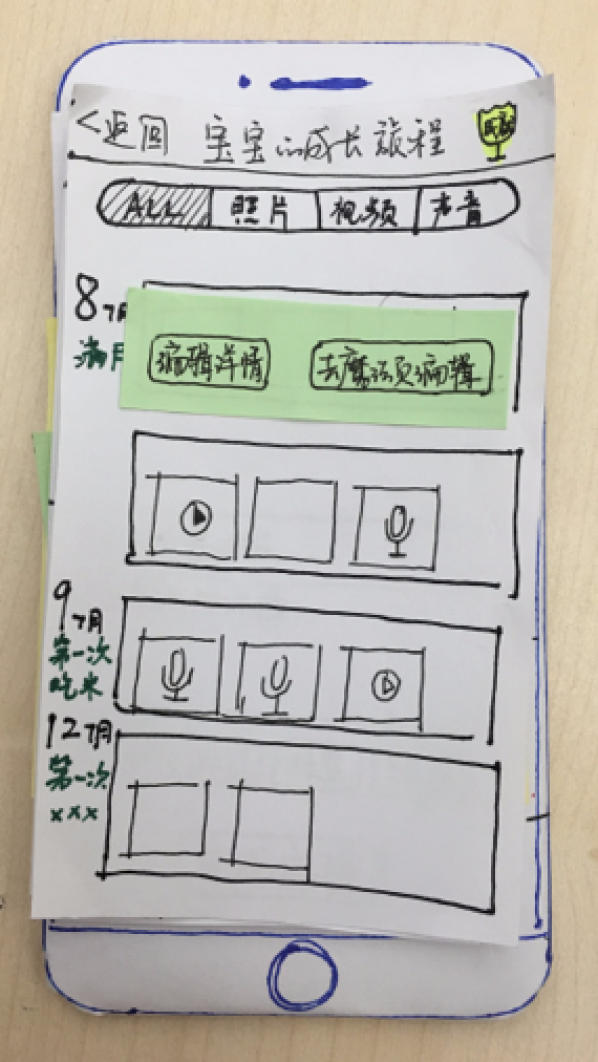 <返回 宝宝的成长旅程
ALL 照片 视频 声音
8个月
满月
编辑详情
9个月
第一次
吃米
12个月
第一次
xxx